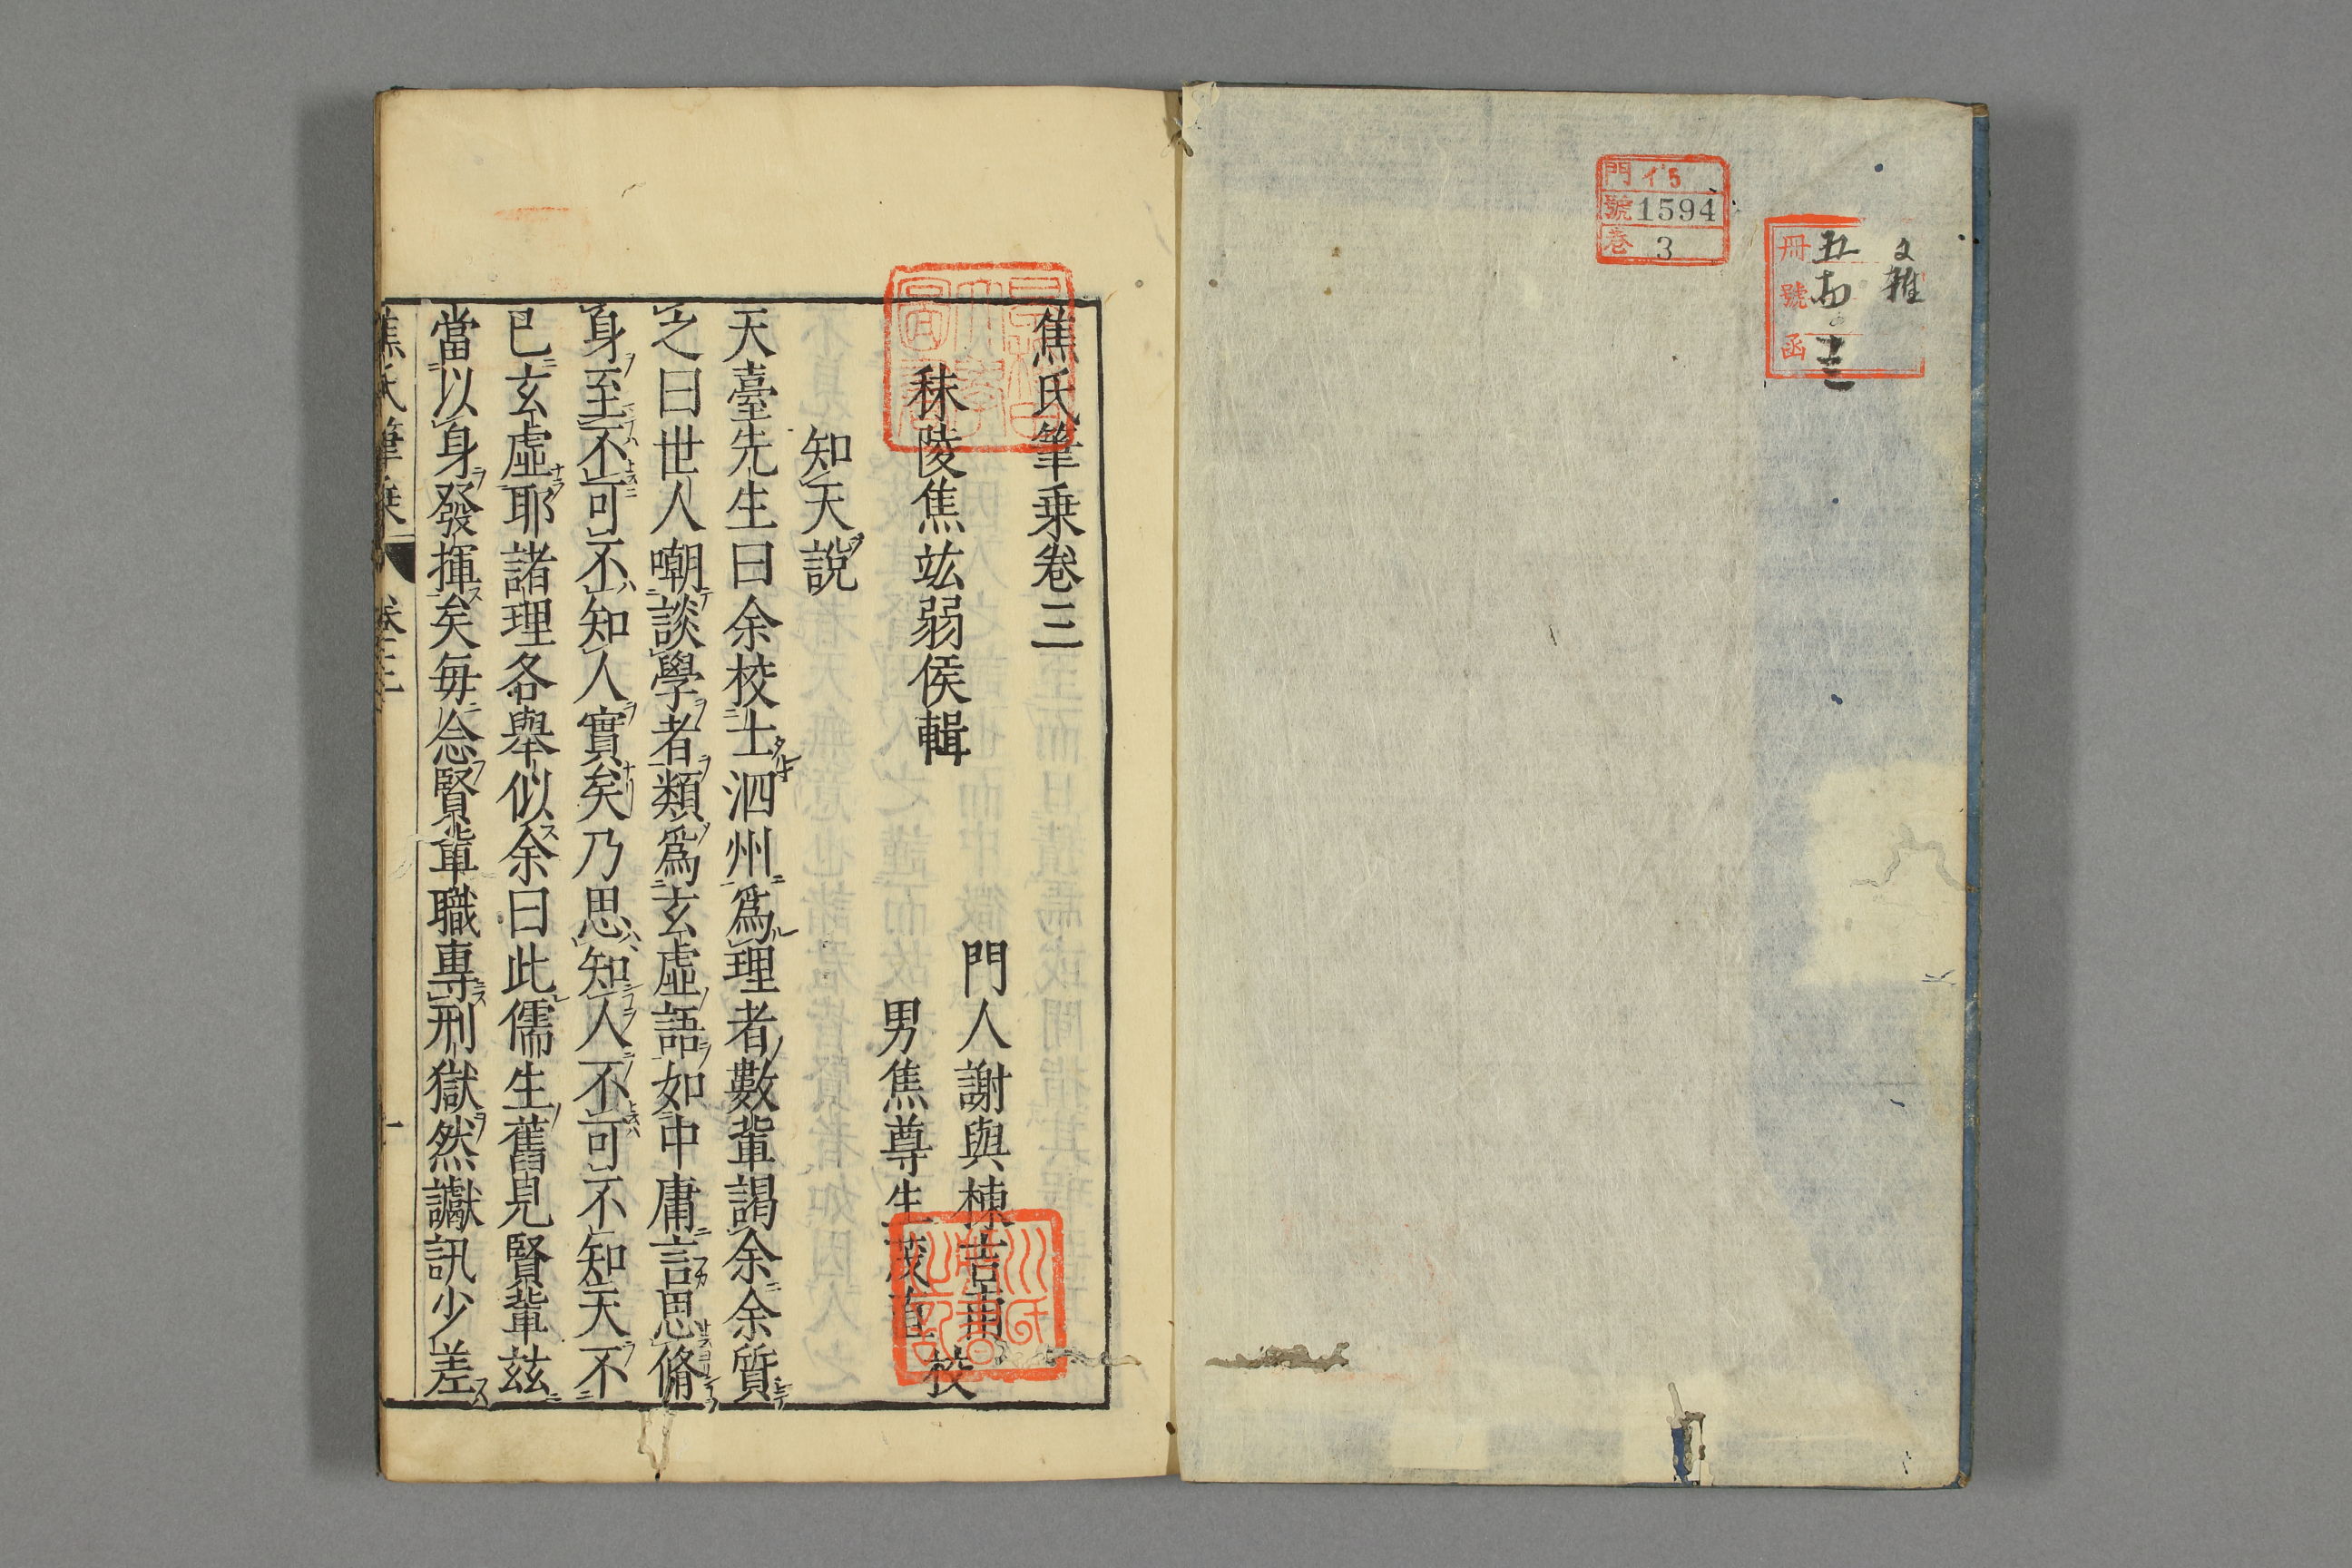 文雜
冊 五
號 拾
函 十三
門 イ5
號 1594
巻 3
焦氏筆乗卷三
秣陵焦竑弱侯輯
門人謝與棟吉甫
男焦尊生茂直
校
知天說
天臺先生曰余校士泗州爲理者數輩謁余余質
之曰世人嘲談學者類爲玄虛語如中庸言思脩
身至不可不知人實矣乃思知人不可不知天不
已玄虛耶諸理各舉似余曰此儒生舊見賢輩玆
當以身發揮矣毎念賢輩職專刑獄然讞訊少差
焦氏筆乗 卷三 一